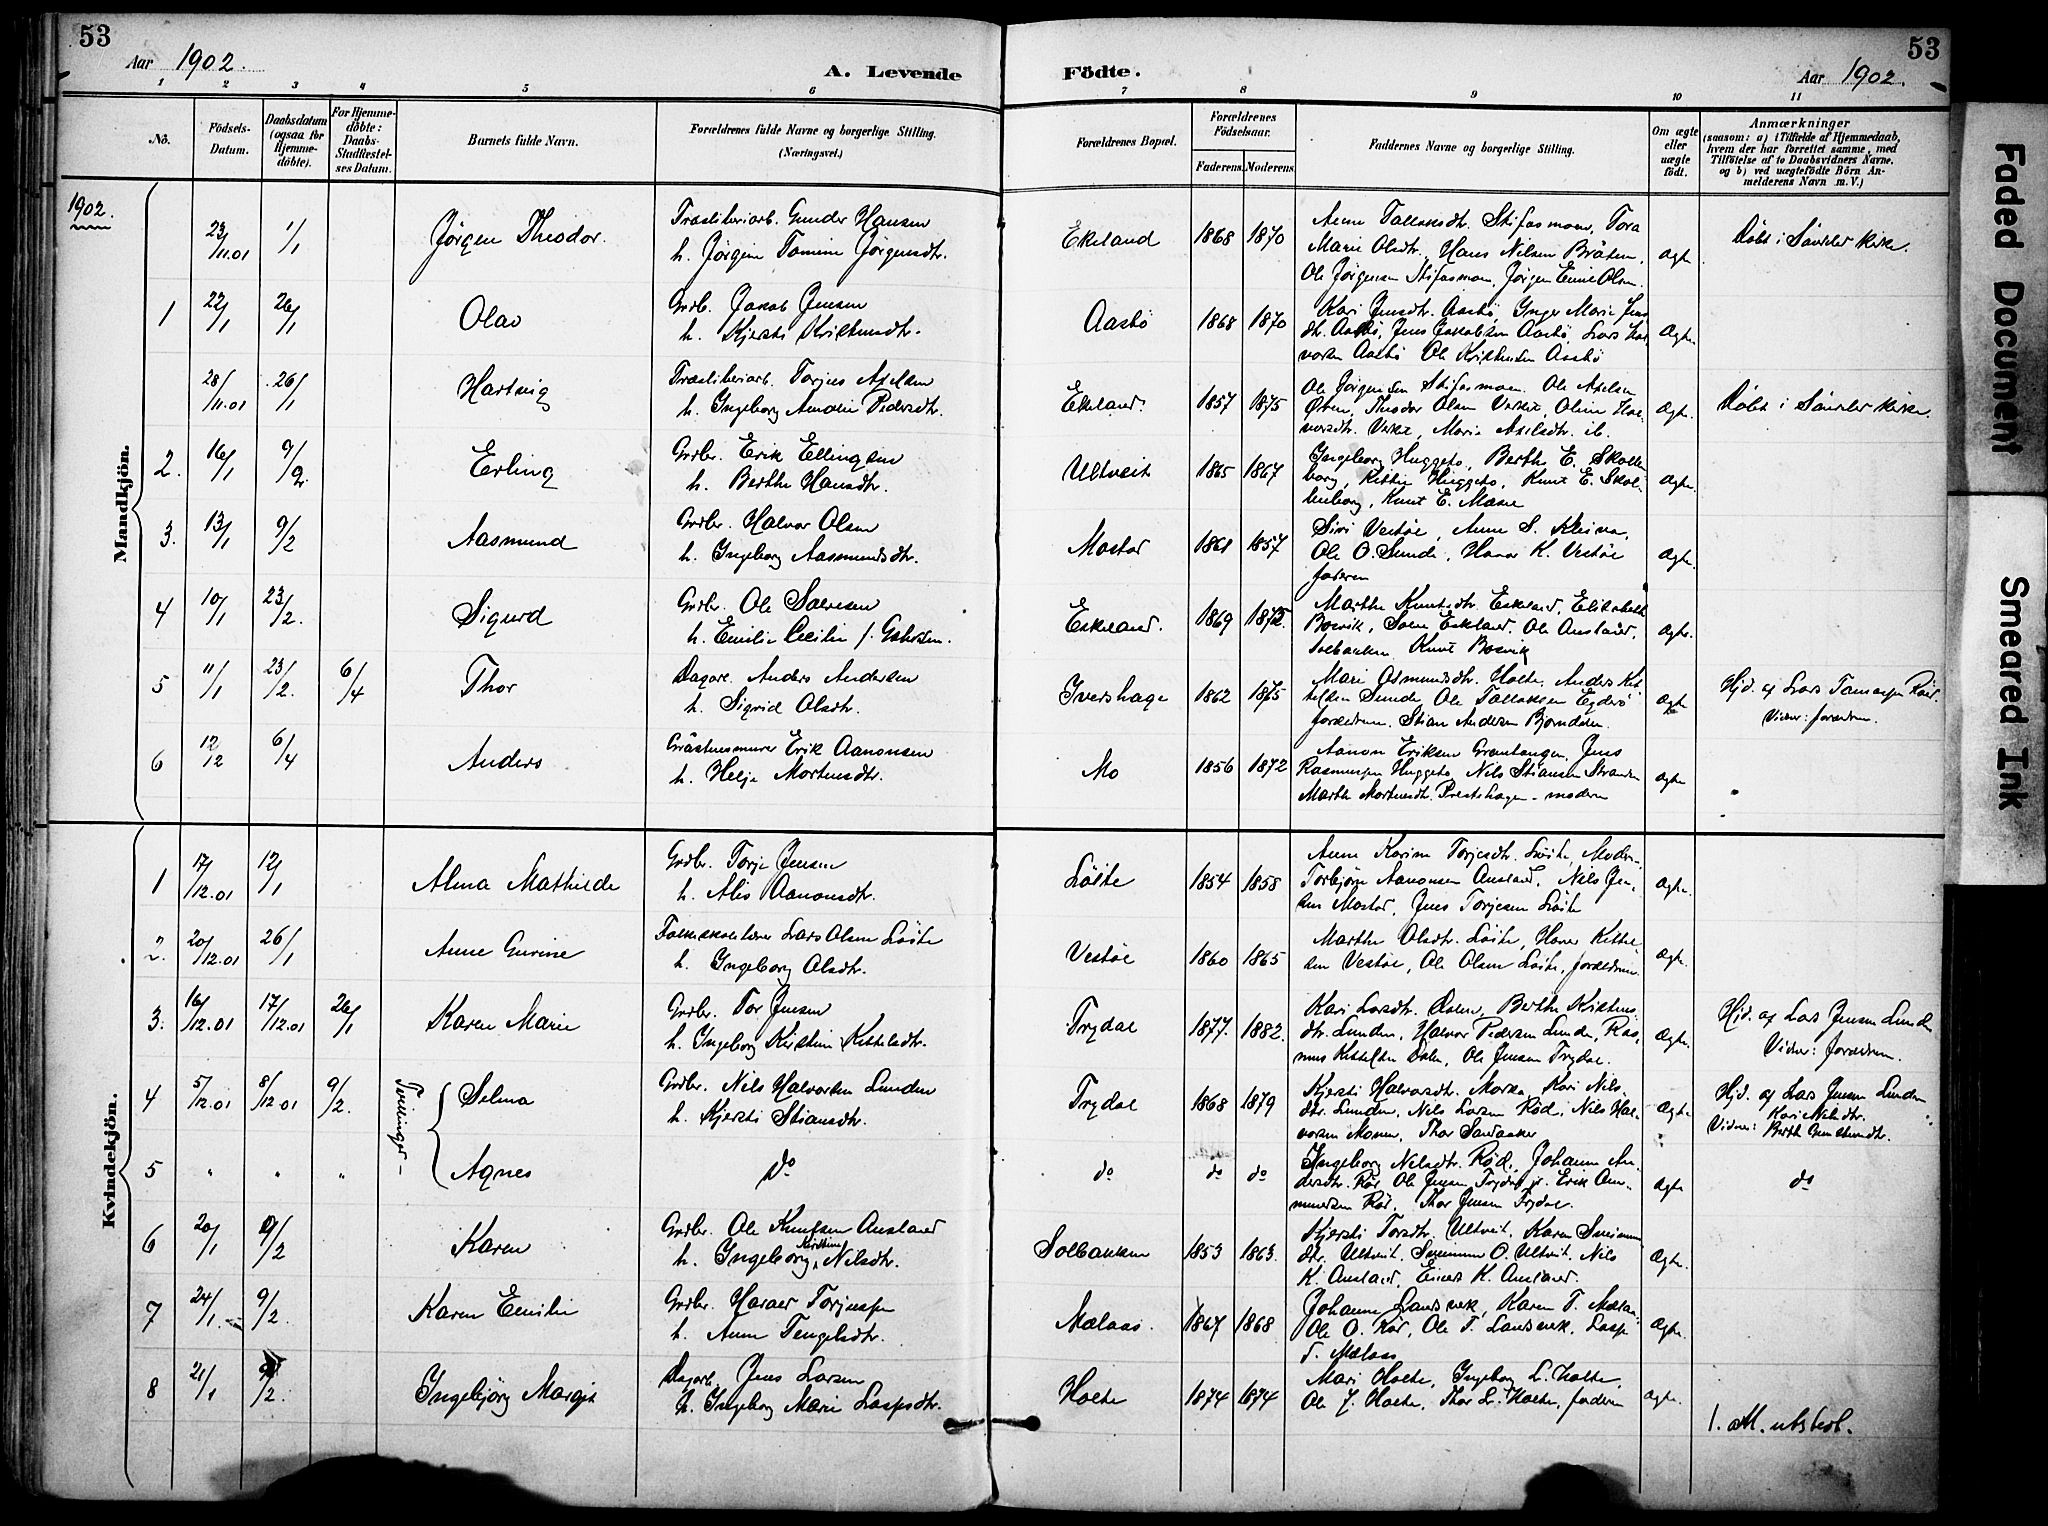 53
Aar 1902.
A. Levende
Födte.
Aar 1902.
53
1 2 3 4 5 6 7 8 9 10 11
No.
Födsels-Datum.
Daabsdatum (ogsaa for Hjemme-döbte).
For Hjemme-döbte: Daabs-Stadfæstelses Datum.
Barnets fulde Navn.
Forældrenes fulde Navne og borgerlige Stilling. (Næringsvei.)
Forældrenes Bopæl.
Forældrenes Födselsaar.
Faderens. Moderens.
Faddernes Navne og borgerlige Stilling.
Om ægte eller uægte födt.
Anmærkninger
(saasom: a) i Tilfælde af Hjemmedaab,
hvem der har forrettet samme, med
Tilföielse af to Daabsvidners Navne,
og b) ved uægtefödte Börn An-
melderens Navn m.V.)
1902.
Mandkjön.
23/11.01 1/1 Jørgen Theodor. Træsliberiarb. Gunder Hansen
h. Jørgine Tomine Jørgensdtr.
Ekeland 1868 1870
Anne Tallaksdtr. Stifosmoen, Tora
Marie Olsdtr., Hans Nilsen Bråten,
Ole Jørgensen Stifosmoen, Jørgen Olsen.
ægte Døbt i Søndeler kirke.
1 22/1 26/1 Olav Grdb. Jakob Jensen
h. Kjersti Kristensdtr.
Aasbø 1868 1870
Kari Jensdtr. Aasbø, Inger Marie Jens
dtr. Aasbø, Jens Jakobsen Aasbø, Lars Hal
vorsen Aasbø Ole Kristensen Aasbø
Ægte.
28/11.01 26/1 Hartvig Træsliberiarb. Torjus Axelsen
h. Ingeborg Amalie Pedersdtr.
Ekeland. 1857 1875
Ole Jørgensen Stifosmoen. Ole Axelsen
Theodor Olsen Verket, Oline Hal-
vorsdtr. Verket, Marie Axelsdtr. ib.
Ægte. Døbt i Søndeler kirke.
2. 16/1 9/2 Erling Grdbr. Erik Ellingsen
h. Berthe Hansdtr.
Ultveit 1865 1867
Ingeborg Huggeto, Berthe E. Skollen
borg, Huggeto, Knut E. Skol-
lenborg, Knut E. Moene
ægte.
3. 13/1 9/2 Aasmund Grdbr. Halvor Olsen
h. Ingeborg Aasmundsdtr.
Mostad 1861 1857
Siri Vestøe, Anne S.
Ole O. Sunde, K. Vestøe
faderen
ægte.
4 10/1 23/2. Sigurd Grdbr. Ole Salvesen
h. Emilie Cecilie f.
Eskeland. 1869 1872.
Marthe Knutsdtr. Eskeland, Elisabeth
Bosvik, Eskeland, Ole Ausland,
Solbakken Knut Bosvik
ægte.
5 11/1 23/2. 6/4 Thor Dagarb. Anders Andersen
h. Sigrid Olsdtr.
Ivershage 1862 1875
Mari Osmundsdtr. Holte, Anders Kit
telsen Sunde Ole Tallaksen
forældrene. Stian Andersen Bjorndalen.
ægte Hjd. af Lars Røed.
Vidner: forældrene.
6 12/2 6/4 Anders Erik Aanonsen
h. Helje Mortensdtr.
Mo 1856 1872
Aanon Eriksen Grantangen, Jens
Rasmussen Huggeto, Nils Stiansen Stranden
Marthe Mortensdtr. Prestehagen - moderen
ægte
Kvindekjön.
1 17/12.01 12/1 Alma Mathilde Grdbr. Torje Jensen
h. Alis Aanonsdtr.
Løite 1854 1858
Anne Karine Torjesdtr. Løite, Moder-
Torbjørn Aanonsen Ausland, Nils Jen-
sen Mostad, Jens Torjesen Løite
ægte.
2. 20/12.01 26/1 Anne Gurine Folkeskolelærer Lars Olsen Løite
h. Ingeborg Olsdtr.
Vestøe 1860 1865
Marthe Olsdtr. Løite, Kittel
sen Vestøe, Ole Olsen Løite, forældrene
Ægte.
3. 16/12.01 17/12.01 26/1 Karen Marie Grdbr. Tor Jensen
h. Ingeborg Kirstine Kittelsdtr.
Trydal 1877. 1882.
Kari Larsdtr. Dalen, Berthe Kristens
dtr. Lunden, Halvor Pedersen Lunden, Ras-
mus Kittelsen Dalen, Ole Jensen Trydal.
Ægte. Hjd. af Lars Jensen Lunden
Vidner: forældrene.
4 5/12.01 8/12.01 9/2. Tvillinger - Selma Grdbr. Nils Halvorsen Lunden
h. Kjersti Stiansdtr.
Trydal 1868 1879
Kjersti Halvorsdtr. Kari Nils
dtr. Lunden, Nils Larsen Rød, Nils Hal-
vorsen Monen, Thor Sandaaker
Ægte. Hjd. af Lars Jensen Lunden
Kari Nilsdtr.
Vidner: Berthe
5 " " " Agnes do do do do
Ingeborg Nilsdtr. Rød, Johanne An-
dersdtr. Rød, Ole Jensen Trydal, Erik
Rød, Thor Jensen Trydal.
Ægte do
6 20/1 9/2 Karen Grdbr. Ole Knutsen Ausland
h. Ingeborg Kirstine Nilsdtr.
Solbakken 1853 1863.
Kjersti Torsdtr. Ultveit. Karen
dtr. Ultveit. O. Ultveit. Nils
K. Ausland, Einert K. Ausland.
Ægte.
7 24/1 9/2. Karen Emilie Grdbr. Torjussen
h. Anne Tengelsdtr.
Mælaas. 1867 1868
Johanne Landsverk, Karen T. Mælaas
Ole O. Rød, Ole T. Landsverk,
T. Mælaas
Ægte.
8 21/1 9/2. Ingebjørg Margit Dagarb. Jens Larsen
h. Ingeborg Marie
Holte 1874 1874
Mari Holte, Ingeborg L. Holte,
Ole J. Holte, Thor L. Holte, faderen
ægte.
1. utsted.
Faded Document
Smeared Ink